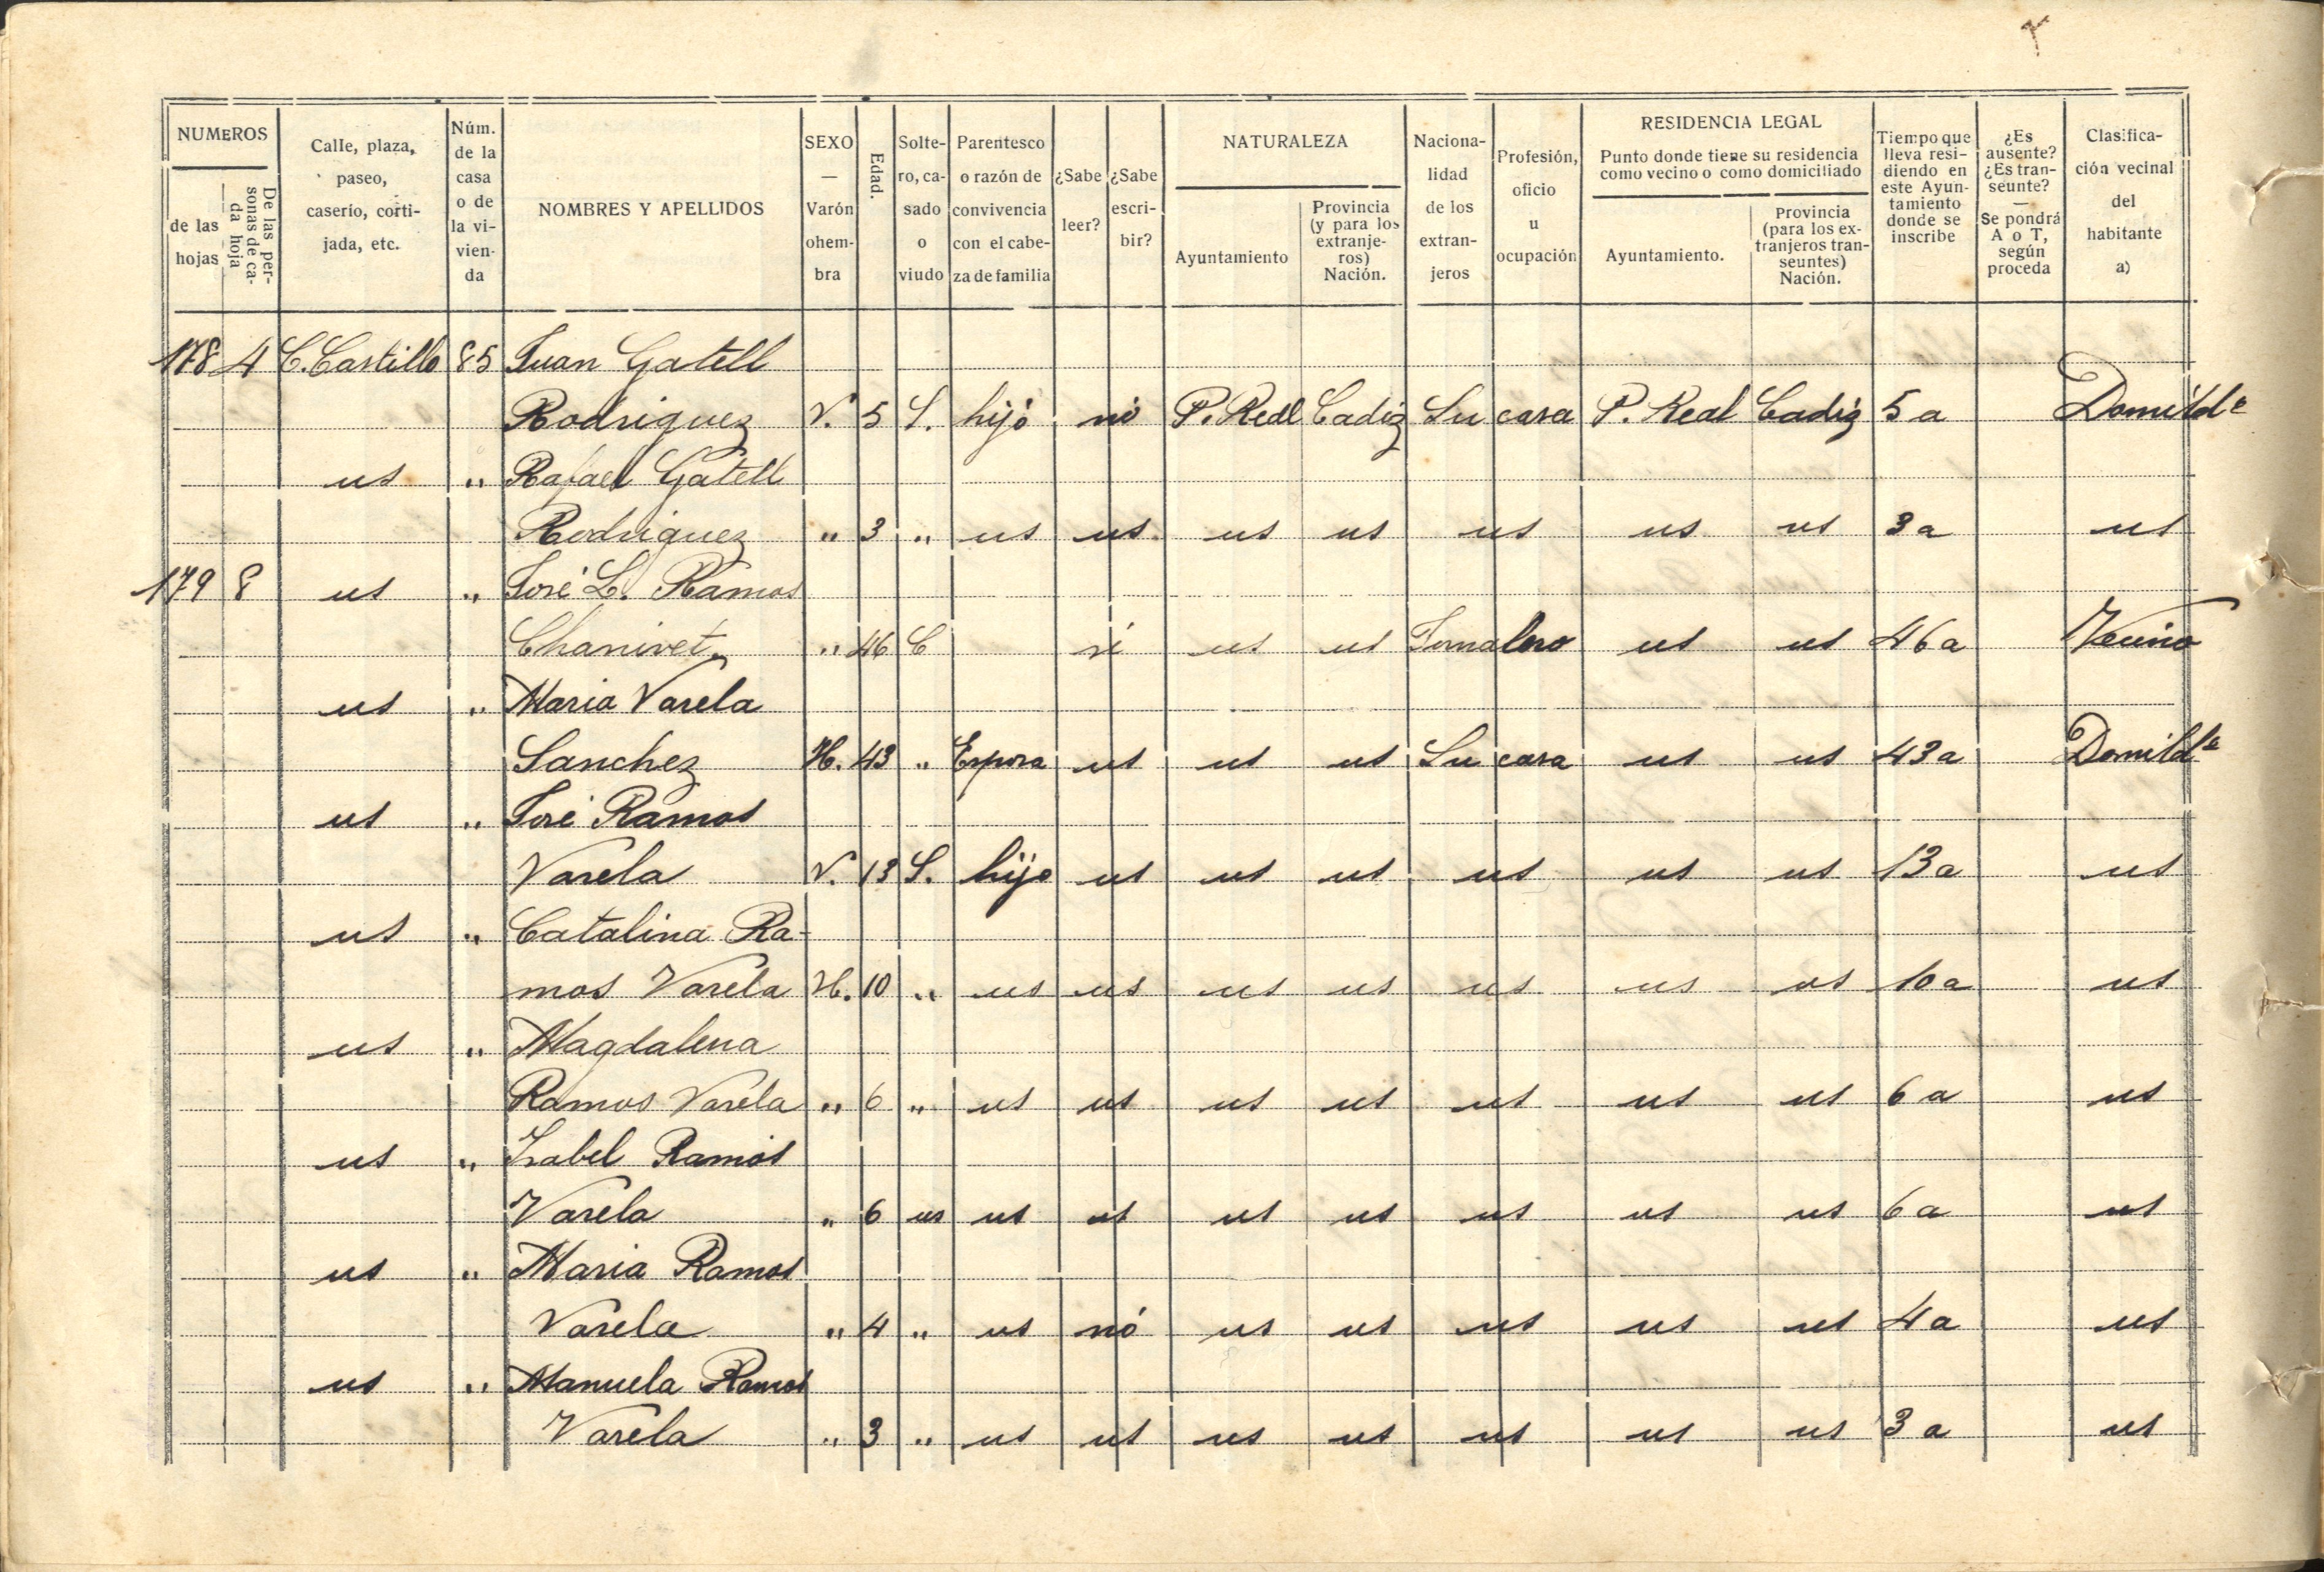 NUMEROS
de las hojas
De las personas de cada hoja
Calle, plaza, paseo, caserío, cortijada, etc.
Núm. de la casa o de la vivienda
NOMBRES Y APELLIDOS
SEXO — Varón o hembra
Edad.
Soltero, casado o viudo
Parentesco o razón de convivencia con el cabeza de familia
¿Sabe leer?
¿Sabe escribir?
NATURALEZA
Ayuntamiento
Provincia (y para los extranjeros) Nación.
Nacionalidad de los extranjeros
Profesión, oficio u ocupación
RESIDENCIA LEGAL
Punto donde tiene su residencia como vecino o como domiciliado
Ayuntamiento.
Provincia (para los extranjeros transeuntes) Nación.
Tiempo que lleva residiendo en este Ayuntamiento donde se inscribe
¿Es ausente? ¿Es transeunte? — Se pondrá A o T, según proceda
Clasificación vecinal del habitante a)
178 4 C. Castillo 85 Juan Gatell
Rodriguez V. 5 S. hijo no P. Real Cadiz Su casa P. Real Cadiz 5 a Domildo
us " Rafael Gatell
Rodriguez " 3 " us us us us us us us 3 a us
179 8 us " José L. Ramos
Chanivet " 46 C sí us us Jornalero us us 46 a Vecino
us " Maria Varela
Sanchez H. 43 " Esposa us us us Su casa us us 43 a Domilda
us " José Ramos
Varela V. 13 S. hijo us us us us us us 13 a us
us " Catalina Ra-
mos Varela H. 10 " us us us us us us us 10 a us
us " Magdalena
Ramos Varela " 6 " us us us us us us us 6 a us
us " Isabel Ramos
Varela " 6 us us us us us us us us 6 a us
us " Maria Ramos
Varela " 4 " us nó us us us us us 4 a us
us " Manuela Ramos
Varela " 3 " us us us us us us us 3 a us